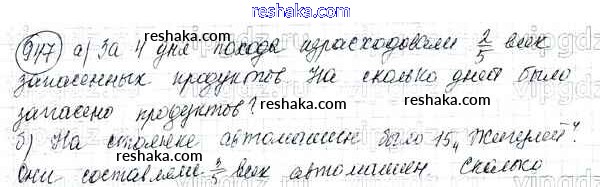 reshaka.com
947 а) За 4 дня похода израсходовали 2/5 всех
reshaka.com
запасенных продуктов На сколько дней было
запасено продуктов? reshaka.com
reshaka.com
б) На стоянке автомашин было 15 „Жигулей".
Они составляли всех автомашин сколько
reshaka.com